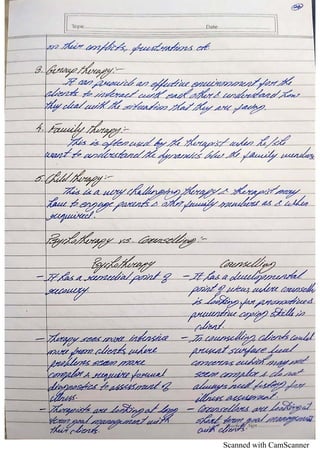 Topic Date
in their conflicts, frustrations etc.
3. Group therapy:-
It can furnish an effective environment for the
clients to interact with each other & understand how
they deal with the situation that they are facing.
4. Family therapy:-
This is often used by the therapist when he/she
want to understand the dynamics b/w the family members
5. Child therapy:-
This is a very challenging therapy & therapist may
have to engage parents & other family members as & when
required.
Psychotherapy vs. Counselling:-
Psychotherapy Counselling
- It has a remedial point of recovery
- It has a developmental point of view, where counsellor is looking for promotive & preventive coping skills in client.
- Therapy sees more intensive
more from clients where
problems seem more
complex & require formal
diagnostics to assessment of
illness.
- In counselling clients could
present surface level
concerns which may not
seem complex & do not
always need testing for
illness assessment
- Therapists are looking at long
term goal management with
their clients
- Counsellors are looking at
short term goal management
with clients
Scanned with CamScanner